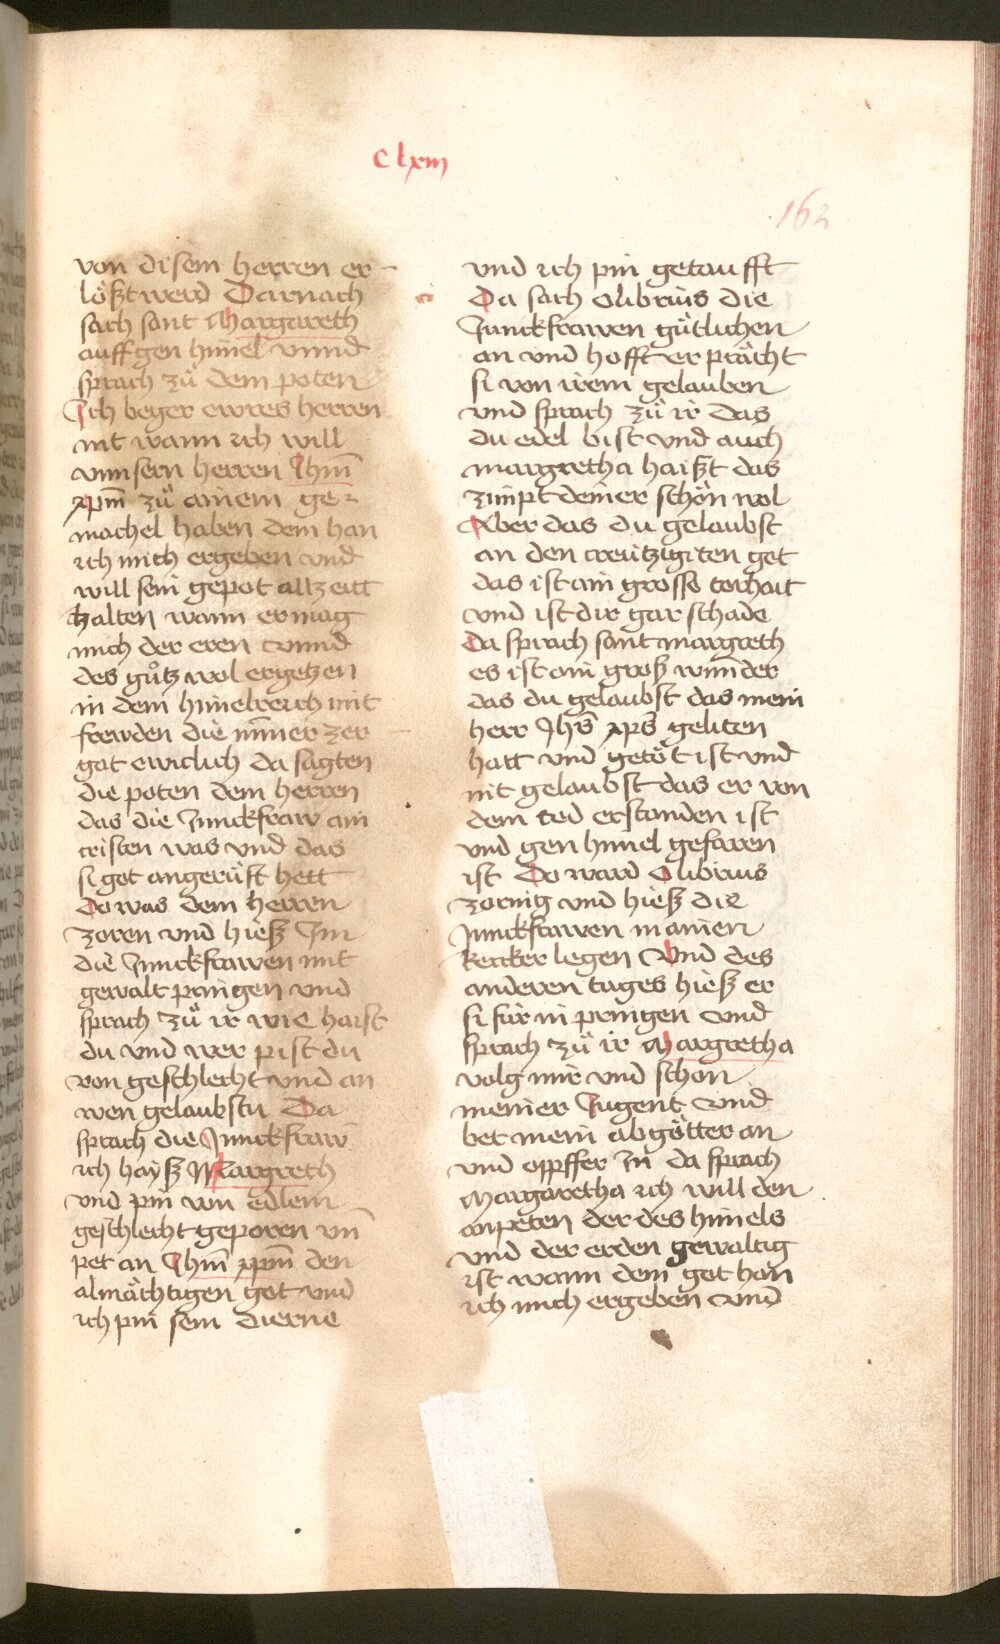 Clxiii
162
von disem herren er-
lößt werd Darnach
sach sant Margareth
auff gen himel vnnd
sprach zů dem poten
Ich beger ewres herren
nit wann ich will
vnnsern herren Jhm̄
xpm̄ zů ainem ge-
machel haben dem han
ich mich ergeben vnd
will sein gepot allzeitt
halten wann er mag
mich der eren vnnd
des gůtz wol ergetzen
in dem himelreich mit
frewden die nim̄er zer-
gat ewiclich da sagten
die poten dem herren
das die Junckfraw ain
cristen was vnd das
si got angerüft hett
Do was dem herren
zoren vnd hieß Im
die Junckfrawen mit
gewalt pringen vnd
sprach zů ir wie haist
du vnd wer pist du
von geschlecht vnd an
wen gelaubstu Da
sprach die Junckfraw
ich hayß Margreth
vnd pin von edlem
geschlecht geporen vn̄
pet an Jhm̄ xpm̄ den
almächtigen got vnd
ich pin sein dierne
vnd ich pin getaufft
Da sach Olibrius die
Junckfrawen gütlichen
an vnd hofft er prächt
si von irem gelauben
vnd sprach zů ir das
du edel bist vnd auch
margretha haißt das
zimpt deiner schön wol
Aber das du gelaubst
an den creützigiten got
das ist ain grosse torhait
vnd ist dir gar schade
Da sprach sant margreth
es ist ain groß wunder
das du gelaubst das mein
herr Jhs̄ xps̄ geliten
hatt vnd getöt ist vnd
nit gelaubst das er von
dem tod erstanden ist
vnd gen himel gefaren
ist Do ward Olibrius
zornig vnd hieß die
Junckfrawen in ainen
kercker legen Vnd des
anderen tages hieß er
si für in pringen vnd
sprach zů ir Margretha
volg mir vnd schon
meiner Jugent vnd
bet mein abgötter an
vnd opffer In da sprach
Margaretha ich will den
anpeten der des himels
vnd der erden gewaltig
ist wann dem got han
ich mich ergeben vnd